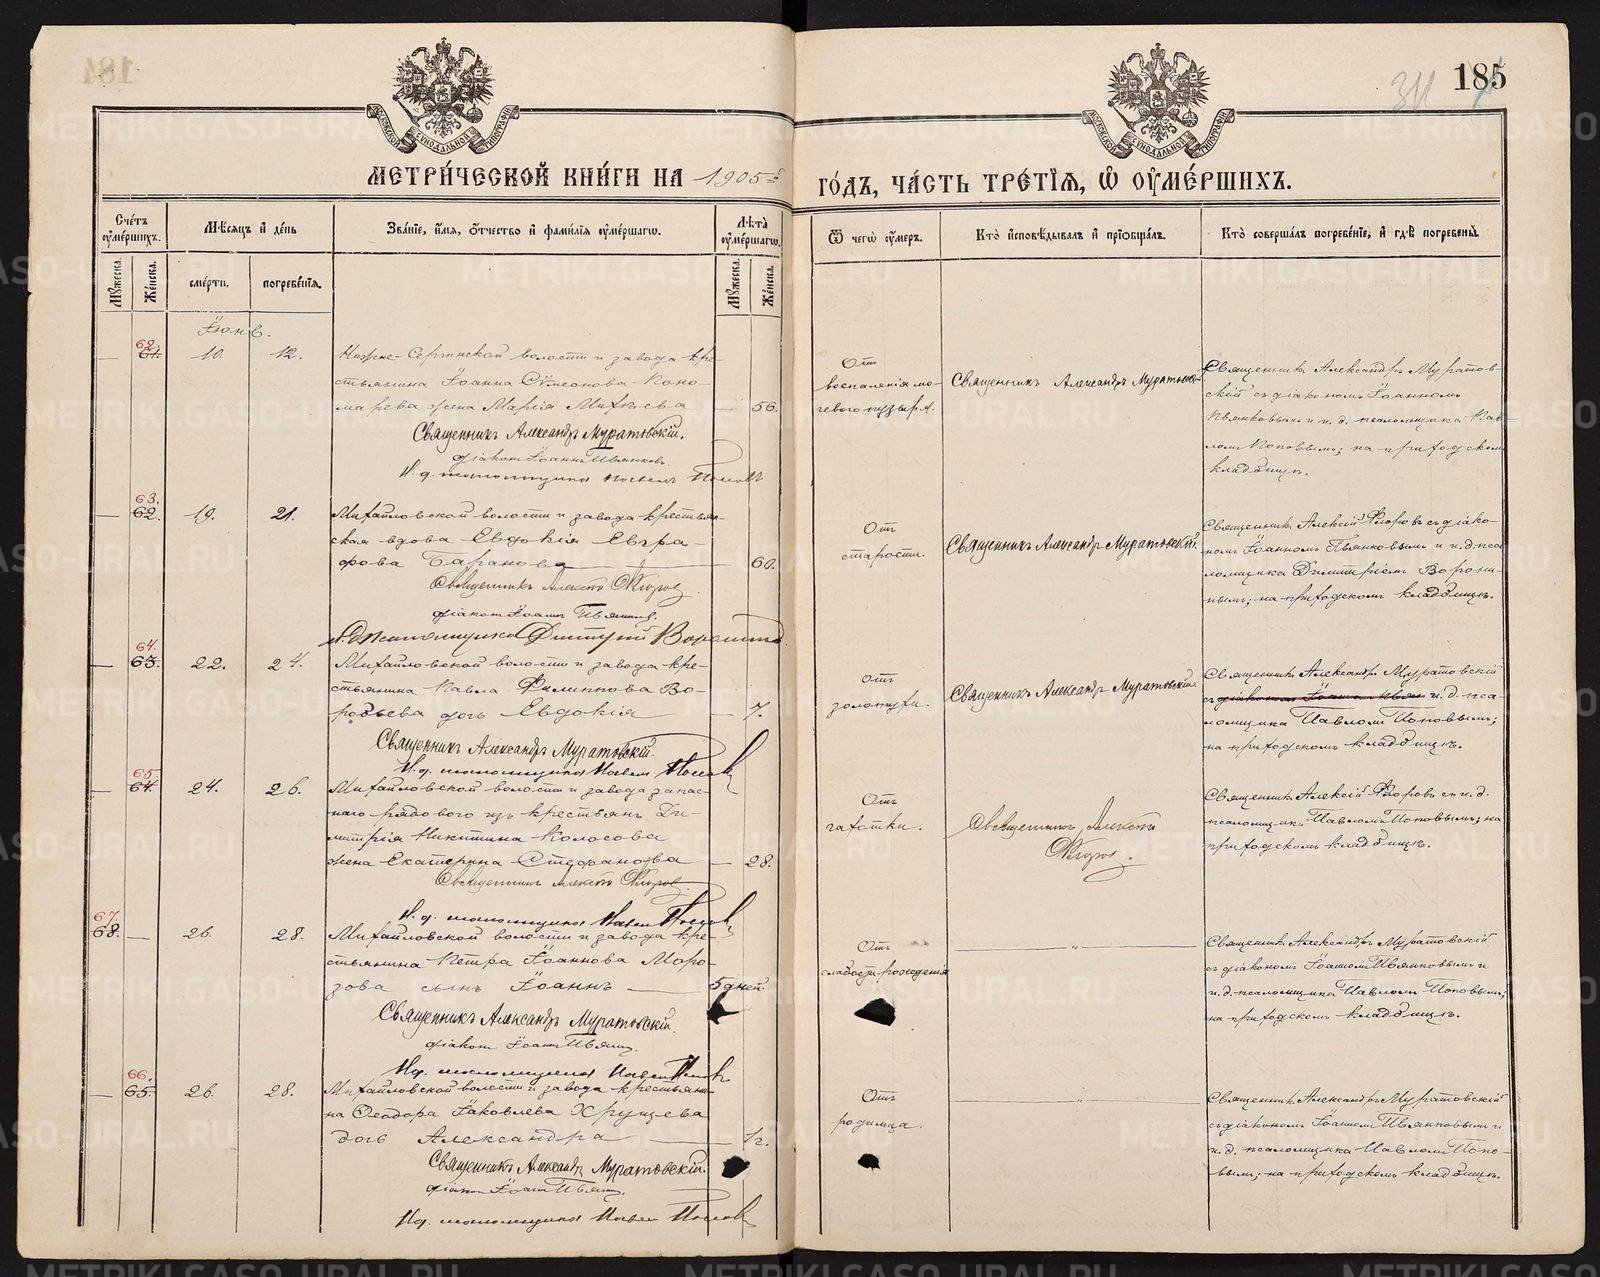 184
185
311
МОСКОВСКОЙ СУНОДАЛЬНОЙ ТИПОГРАФІИ
МОСКОВСКОЙ СУНОДАЛЬНОЙ ТИПОГРАФІИ
МЕТРИ́ЧЕСКОЙ КНИ́ГИ НА 1905й
ГО́ДЪ, ЧА́СТЬ ТРЕ́ТІѦ, Ѡ ОУМЕ́РШИХЪ.
Сче́тъ оуме́ршихъ.
Мꙋжеска.
Же́нска.
Мѣ́сяцъ и де́нь
сме́рти.
погребе́нія.
Зва́ніе, и́мя, о́тчество и фами́лія оуме́ршагѡ.
Лѣ́та оуме́ршагѡ.
Мꙋжеска.
Же́нска.
Ѿ чегѡ̀ оу́меръ.
Кто̀ и́сповѣ́дывалъ и прїобща́лъ.
Кто̀ соверша́лъ погребе́ніе, и гдѣ̀ погребены̀.
Іюнь.
62.
61. 10. 12. Нижне-Сергинской волости и завода кре-
стьянина Іоанна Сѵмеонова Поно-
марева жена Марія Михѣева — 56.
Священникъ Александръ Муратовскій.
діаконъ Іоаннъ Пьянковъ.
И. д. псаломщика Павелъ Поповъ
Отъ
воспаленія мо-
чевого пузыря.
Священникъ Александръ Муратовскій
Священникъ Александръ Муратов-
скій съ діакономъ Іоанномъ
Пьянковымъ и и. д. псаломщика Пав-
ломъ Поповымъ; на приходскомъ
кладбищѣ.
63.
— 62. 19. 21. Михайловской волости и завода крестьян-
ская вдова Евдокія Евгра-
фова Баранова — 60.
Священникъ Алексѣй Флоровъ.
діаконъ Іоаннъ Пьянковъ.
и. д. псаломщика Димитрій Воронинъ
Отъ
старости.
Священникъ Александръ Муратовскій.
Священникъ Алексій Флоровъ съ діако-
номъ Іоанномъ Пьянковымъ и и. д. пса-
ломщика Димитріемъ Ворони-
нымъ; на приходскомъ кладбищѣ.
64.
— 63. 22. 24. Михайловской волости и завода кре-
стьянина Павла Филиппова Во-
робьева дочь Евдокія — 7.
Священникъ Александръ Муратовскій.
И. д. псаломщика Павелъ Поповъ
Отъ
золотухи.
Священникъ Александръ Муратовскій.
Священникъ Александръ Муратовскій
съ діакономъ Іоанномъ Пьян и. д. пса-
ломщика Павломъ Поповымъ;
на приходскомъ кладбищѣ.
65.
— 64. 24. 26. Михайловской волости и завода запас-
наго рядового изъ крестьянъ Ди-
митрія Никитина Колосова
жена Екатерина Стефанова — 28.
Священникъ Алексѣй Флоровъ.
И. д. псаломщика Павелъ Поповъ
Отъ
чахотки.
Священникъ Алексѣй
Флоровъ.
Священникъ Алексій Флоровъ съ и. д.
псаломщика Павломъ Поповымъ; на
приходскомъ кладбищѣ.
67.
68. — 26. 28. Михайловской волости и завода кре-
стьянина Петра Іоаннова Моро-
зова сынъ Іоаннъ — 5 дней.
Священникъ Александръ Муратовскій.
діаконъ Іоаннъ Пьянковъ
И. д. псаломщика Павелъ Поповъ
Отъ
слабости рожденія
— „ —
Священникъ Александръ Муратовскій
съ діакономъ Іоанномъ Пьянковымъ и
и. д. псаломщика Павломъ Поповымъ;
на приходскомъ кладбищѣ.
66.
— 65. 26. 28. Михайловской волости и завода крестьяни-
на Ѳеодора Іаковлева Хрущева
дочь Александра — 1 г.
Священникъ Александръ Муратовскій.
діаконъ Іоаннъ Пьянковъ.
И. д. псаломщика Павелъ Поповъ
Отъ
родимца.
— „ —
Священникъ Александръ Муратовскій
съ діакономъ Іоанномъ Пьянковымъ и
и. д. псаломщика Павломъ Попо-
вымъ; на приходскомъ кладбищѣ.
METRIKI.GASO-URAL.RU